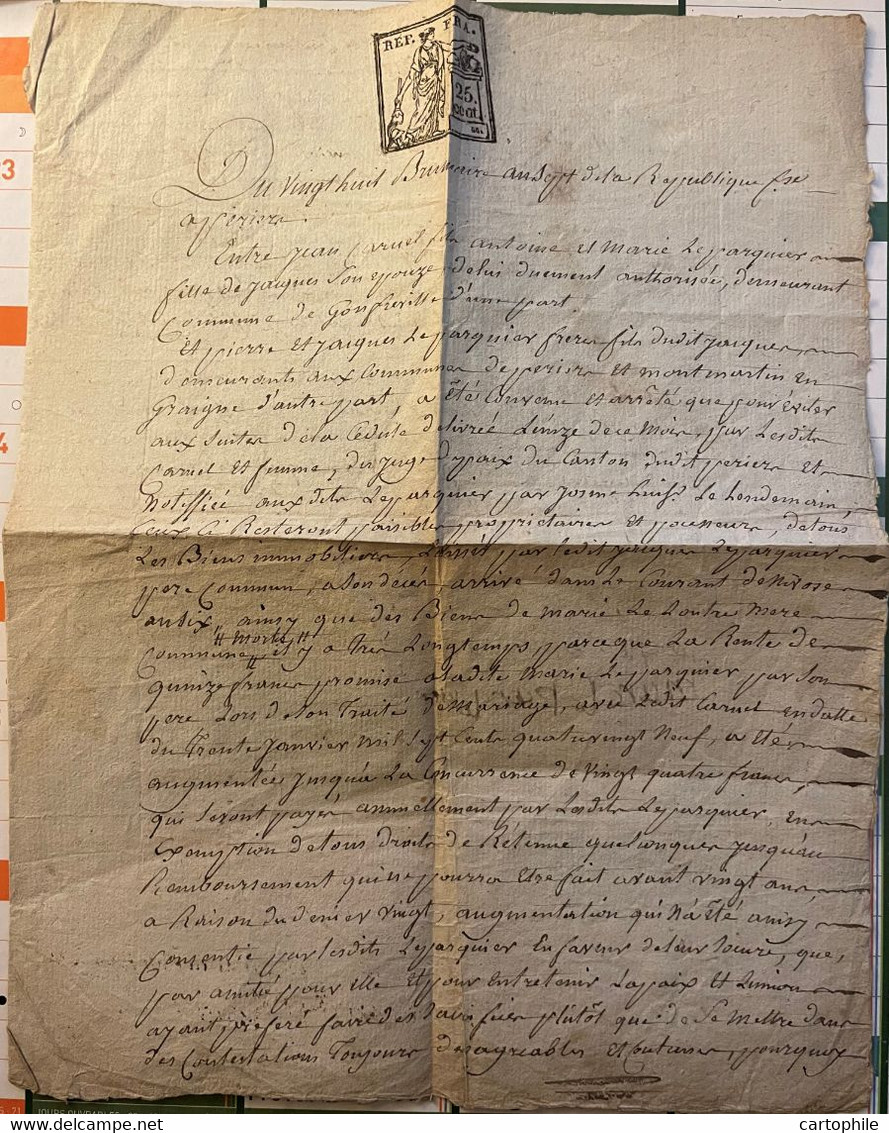 REP. FRA.
25.
cent.
Du vingt huit Brumaire an Sept de la Republique fse
a periers
Entre jean Caruel fils antoine et Marie Leparquier
fille de jacques Son epouze, de lui duement authorisée, demeurant
Commune de Gonfreville d'une part
Et pierre et jacques Leparquier freres fils dudit jacques,
demeurants aux Communes de periers et montmartin en
Graigne d'autre part, a Été Convenu et arrêté que pour éviter
aux Suites de la Cedule delivrée Le onze de ce Mois, par Lesdits
Caruel et femme, du juge de paix du Canton dudit periers et
Notiffiée auxdits Leparquier par josme huisr. Le Lendemain,
Ceux Ci Resteront paisibles proprietaires et possesseurs, de tous
Les Biens immobiliers Laissés par ledit jacques Leparquier
pere Commun, a Son décés, arrivé dans Le Courant de Nivose
an Six, ainsy que des Biens de Marie Le Loutre Mere
"Morte"
Commune, il y a trés Longtemps, parceque La Rente de
quinze francs promise a ladite Marie Leparquier par Son
pere Lors de Son Traité de Mariage, avec Ledit Caruel en datte
du Trente janvier Mil Sept Cents quatre vingt Neuf, a été
augmentée jusqu'a La Concurrence de Vingt quatre francs,
qui Seront payés annuellement par Lesdits Leparquier, en
Exemption de tous droits de Rétenue quelconques jusqu'au
Remboursement qui ne pourra Etre fait avant vingt ans,
a Raison du denier vingt, augmentation qui N'a Été ainsy
Consentie par lesdits Leparquier En faveur de leur Soeur, que
par amitié pour elle Et pour Entretenir La paix Et L'union
ayant preferé faire des Sacrifices plûtôt que de Se Mettre dans
des Contestations Toujours desagreables et Couteuses, pourquoy
cartophile